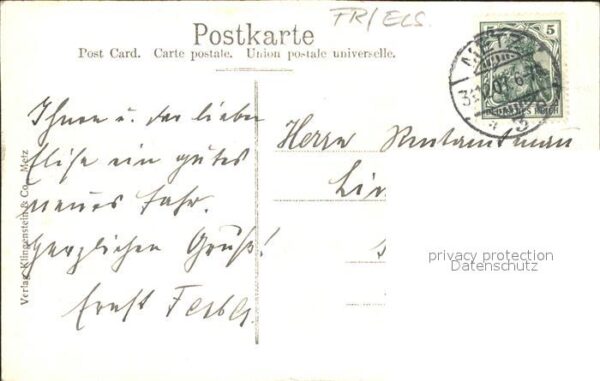 FR/ELS.
Postkarte
Post Card. Carte postale. Union postale universelle.
5 5
METZ
31.12.07.6-7
DEUTSCHES REICH
Ihnen u. der lieben
Elise ein gutes
neues Jahr.
herzlichen Gruß!
Ernst
Herrn Rentamtman
privacy protection
Datenschutz
Verlag Klingenstein & Co., Metz